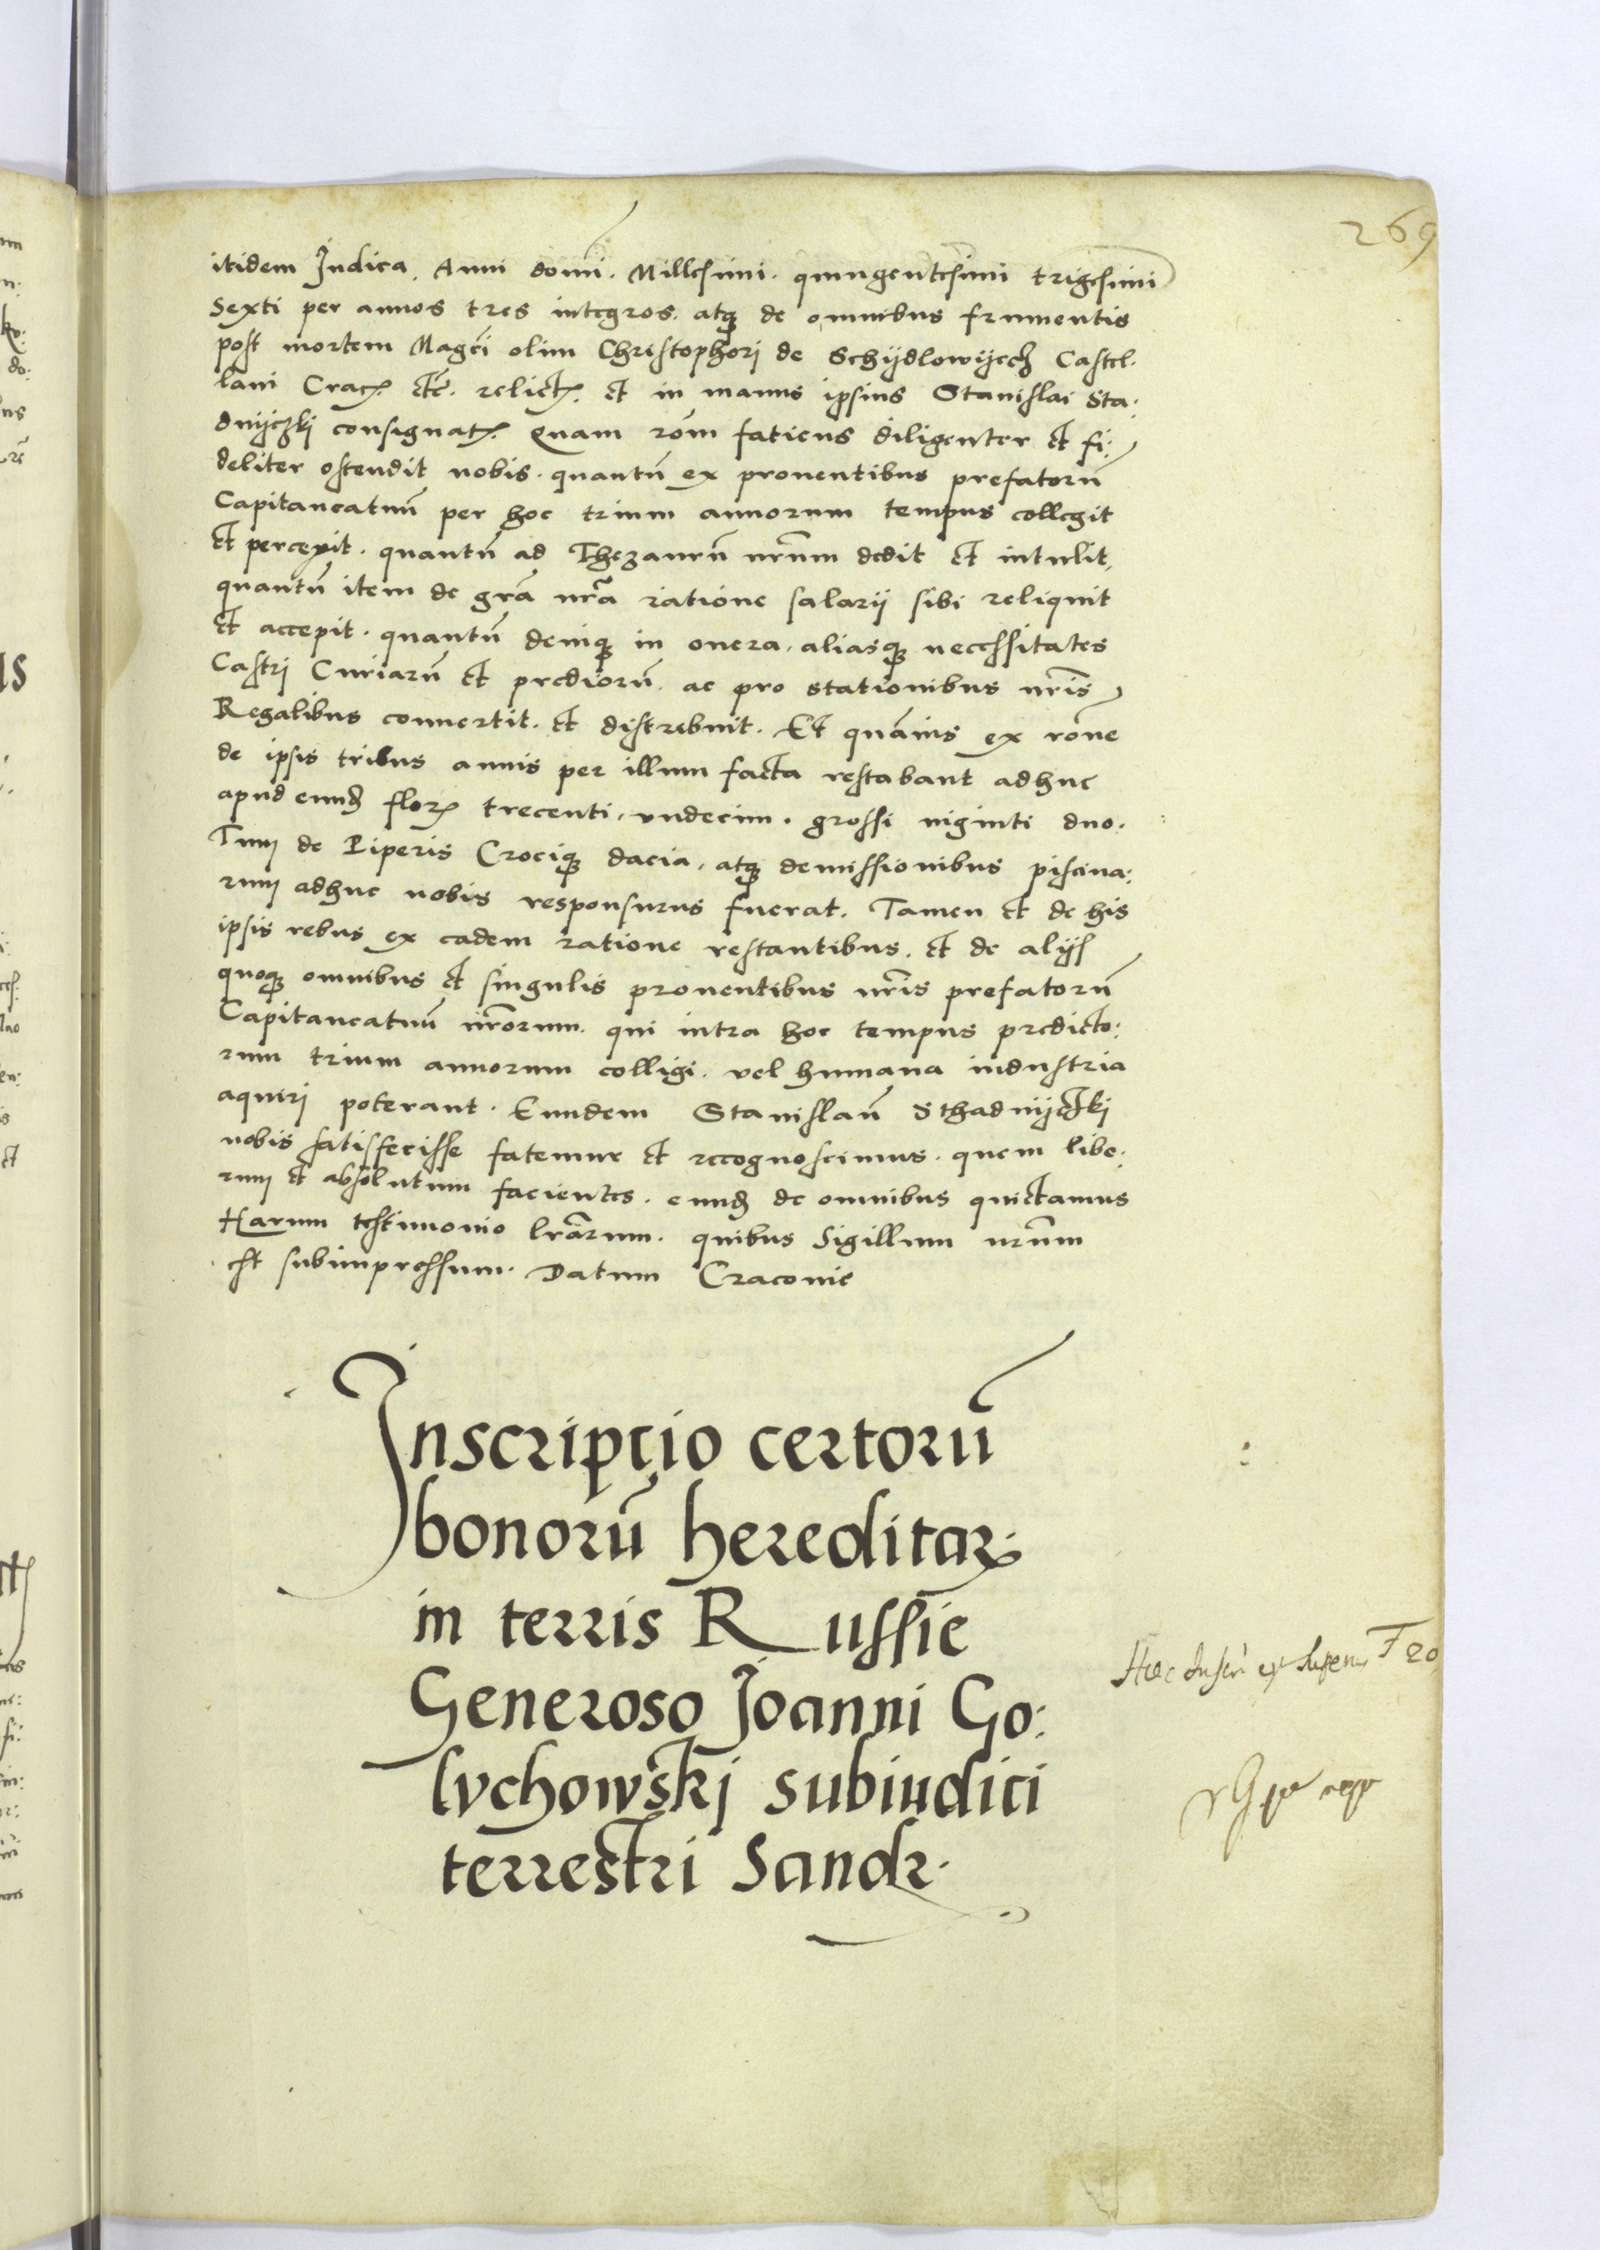 269
itidem Judica. Anni domi. Millesimi. quingentesimi trigesimi
Sexti per annos tres integros. atq̃ de omnibus frumentis
post mortem Magci olim Christophori de Schydlowyecz Castel.
lani Crac. etc. relict. et in manus ipsius Stanislai Sta:
dnyczkj consignat. Quam rom̃ fatiens diligenter et fi:
deliter ostendit nobis. quantũ ex prouentibus prefatorũ
Capitaneatuũ per hoc trium annorum tempus collegit
et percepit. quantũ ad Thezaurũ nrũm dedit et intulit,
quantũ item de grã nrã ratione salarij sibi reliquit
et accepit. quantũ deniq̃ in onera, aliasq̃ necessitates
Castri Curiarũ et prediorũ. ac pro stationibus nrĩs
Regalibus conuertit. et distribuit. Et quãuis ex rõne
de ipsis tribus annis per illum facta restabant adhuc
apud eund flor trecenti, vndecim. grossi viginti duo.
Tum de Piperis Crociq̃ dacia, atq̃ demissionibus piscina:
rum adhuc nobis responsurus fuerat. Tamen et de his
ipsis rebus ex eadem ratione restantibus. et de alijs
quoq̃ omnibus et singulis prouentibus nrĩs prefatorũ
Capitaneatuũ nr̃orum. qui intra hoc tempus predicto:
rum trium annorum colligi. vel humana industria
aquiri poterant. Eundem Stanislaũ Sthadnyczkj
nobis satisfecisse fatemur et recognoscimus. quem libe:
rum et absolutum facientes. eund de omnibus quictamus
Harum testimonio lrãrum. quibus Sigillum nrũm
est subimpressum. Datum Cracouie
Inscripcio certorũ
bonorũ hereditar.
in terris Russie
Generoso Joanni Go:
lvchowskj subiudici
terrestri Sandr.